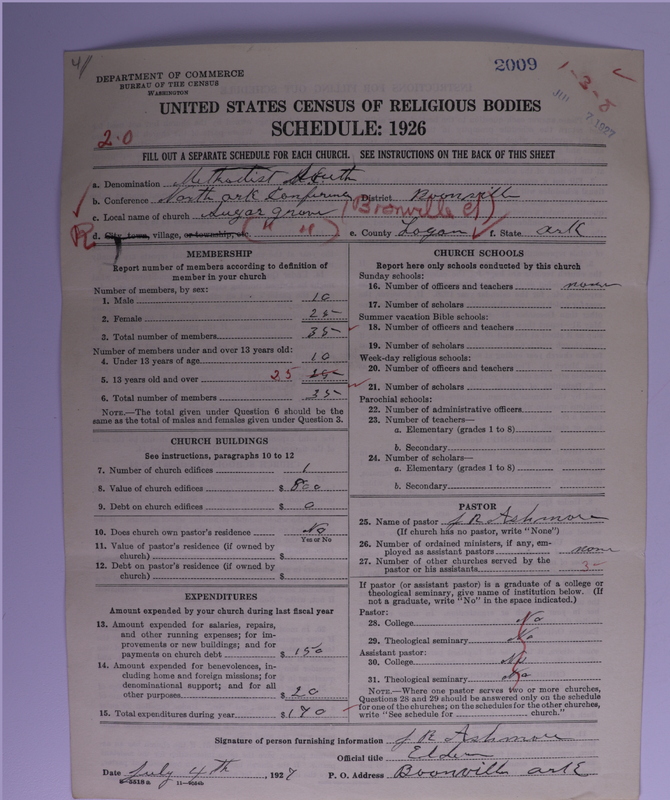 4/
2009
1-3-8
DEPARTMENT OF COMMERCE
BUREAU OF THE CENSUS
WASHINGTON
7, 1927
UNITED STATES CENSUS OF RELIGIOUS BODIES
SCHEDULE: 1926
2.0
FILL OUT A SEPARATE SCHEDULE FOR EACH CHURCH. SEE INSTRUCTIONS ON THE BACK OF THIS SHEET
a. Denomination Methodist South
b. Conference North Ark Conference District Boonville
c. Local name of church Sugar grove (Bronville Ct)
R d. City, town, village, or township, etc (" ") e. County Logan f. State Ark
MEMBERSHIP
Report number of members according to definition of
member in your church
Number of members, by sex:
1. Male 10
2. Female 25
3. Total number of members 35
Number of members under and over 13 years old:
4. Under 13 years of age 10
5. 13 years old and over 25
6. Total number of members 35
NOTE.—The total given under Question 6 should be
same as the total of males and females given under Question 3.
CHURCH BUILDINGS
See instructions, paragraphs 10 to 12
7. Number of church edifices 1
8. Value of church edifices $ 800
9. Debt on church edifices $ 0
10. Does church own pastor's residence No
Yes or No
11. Value of pastor's residence (if owned by
church) $
12. Debt on pastor's residence (if owned by
church) $
EXPENDITURES
Amount expended by your church during last fiscal year
13. Amount expended for salaries, repairs,
and other running expenses; for im-
provements or new buildings; and for
payments on church debt $ 150
14. Amount expended for benevolences, in-
cluding home and foreign missions; for
denominational support; and for all
other purposes $ 20
15. Total expenditures during year $ 170
CHURCH SCHOOLS
Report here only schools conducted by this church
Sunday schools:
16. Number of officers and teachers none
17. Number of scholars
Summer vacation Bible schools:
18. Number of officers and teachers
19. Number of scholars
Week-day religious schools:
20. Number of officers and teachers
21. Number of scholars
Parochial schools:
22. Number of administrative officers
23. Number of teachers—
a. Elementary (grades 1 to 8)
b. Secondary
24. Number of scholars—
a. Elementary (grades 1 to 8)
b. Secondary
PASTOR
25. Name of pastor J R Ashmore
(If church has no pastor, write "None")
26. Number of ordained ministers, if any, em-
ployed as assistant pastors none
27. Number of other churches served by the
pastor or his assistants 3
If pastor (or assistant pastor) is a graduate of a college or
theological seminary, give name of institution below. (If
not a graduate, write "No" in the space indicated.)
Pastor:
28. College No
29. Theological seminary No
Assistant pastor:
30. College No
31. Theological seminary No
NOTE.—Where one pastor serves two or more churches,
Questions 28 and 29 should be answered only on the schedule
for one of the churches; on the schedules for the other churches,
write "See schedule for church."
Signature of person furnishing information J R Ashmore
Official title Elder
Date July 4th, 1927 P. O. Address Boonville Ark
8-5518 a 11—9054b